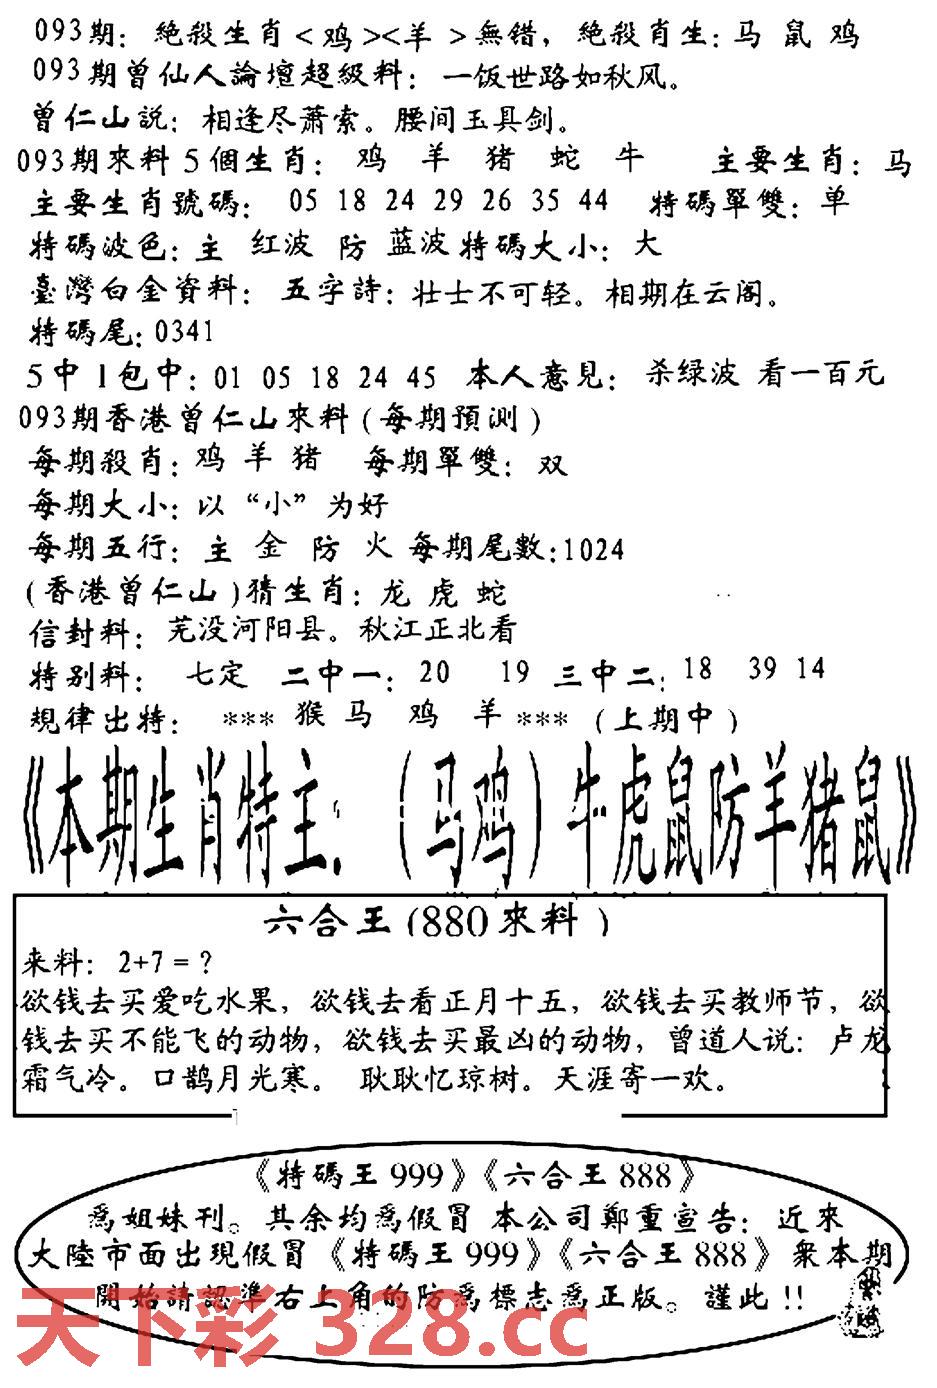 093期: 絶殺生肖<鸡><羊>無错, 絶殺肖生: 马 鼠 鸡
093期曾仙人論壇超級料: 一饭世路如秋风。
曾仁山説: 相逢尽萧索。腰间玉具剑。
093期來料5個生肖: 鸡 羊 猪 蛇 牛 主要生肖: 马
主要生肖號碼: 05 18 24 29 26 35 44 特碼單雙: 单
特碼波色: 主 红波 防 蓝波 特碼大小: 大
臺灣白金資料: 五字詩: 壮士不可轻。相期在云阁。
特碼尾: 0341
5中1包中: 01 05 18 24 45 本人意見: 杀绿波 看一百元
093期香港曾仁山來料(每期預测)
每期殺肖: 鸡 羊 猪 每期單雙: 双
每期大小: 以“小”为好
每期五行: 主 金 防 火 每期尾數:1024
(香港曾仁山)猜生肖: 龙 虎 蛇
信封料: 芜没河阳县。秋江正北看
特别料: 七定 二中一: 20 19 三中二: 18 39 14
規律出特: *** 猴 马 鸡 羊 *** (上期中)
《本期生肖特主:(马鸡)牛虎鼠防羊猪鼠》
六合王(880來料)
来料: 2+7=?
欲钱去买爱吃水果, 欲钱去看正月十五, 欲钱去买教师节, 欲
钱去买不能飞的动物, 欲钱去买最凶的动物, 曾道人说: 卢龙
霜气冷。口鹊月光寒。 耿耿忆琼树。天涯寄一欢。
《特碼王999》《六合王888》
爲姐妹刊。其余均爲假冒 本公司鄭重宣告: 近來
大陸市面出現假冒《特碼王999》《六合王888》衆本期
開始請認準右上角的防爲標志爲正版。謹此!!
天下彩 328.cc